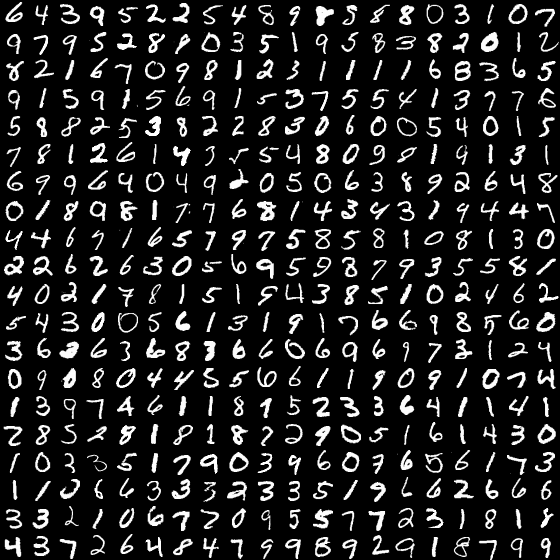 6 4 3 9 5 2 2 5 4 8 9 8 5 8 8 0 3 1 0 7
9 7 9 5 2 8 8 0 3 5 1 9 5 8 3 8 2 0 1 2
8 2 1 6 7 0 9 8 1 2 3 1 1 1 1 6 8 3 6 5
9 1 5 9 1 5 6 9 1 5 3 7 5 5 4 1 3 7 7 6
5 8 8 2 5 3 8 2 2 8 3 0 6 0 0 5 4 0 1 5
7 8 1 2 6 1 4 3 5 5 4 8 0 9 8 1 9 1 3 1
6 9 9 6 4 0 4 9 2 0 5 0 6 3 8 9 2 6 4 8
0 1 8 9 8 1 7 7 6 8 1 4 3 4 3 1 9 4 4 7
4 4 6 9 1 6 5 7 9 7 5 8 5 8 1 0 8 1 3 0
2 2 6 2 6 3 0 5 6 9 5 9 8 7 9 3 5 5 8 1
4 0 2 1 7 8 1 5 1 9 4 3 8 5 1 0 2 4 6 2
5 4 3 0 0 5 6 1 3 1 9 1 7 6 6 9 8 5 6 0
3 6 3 6 3 6 8 3 6 6 0 6 9 6 9 7 3 1 2 4
0 9 0 8 0 4 4 5 5 6 6 1 1 9 0 9 1 0 7 4
1 3 9 7 4 6 1 1 8 9 5 2 3 3 6 4 1 1 4 1
2 8 5 2 8 1 8 1 8 7 2 9 0 5 1 6 1 4 3 0
1 0 3 3 5 1 7 9 0 3 9 6 0 7 6 5 6 1 7 3
1 1 0 6 6 3 3 3 2 3 3 5 1 9 6 6 2 6 6 6
3 3 2 1 0 6 7 7 0 9 5 5 7 7 2 3 1 8 1 8
4 3 7 2 6 4 8 4 7 9 9 8 9 2 9 1 8 7 9 9